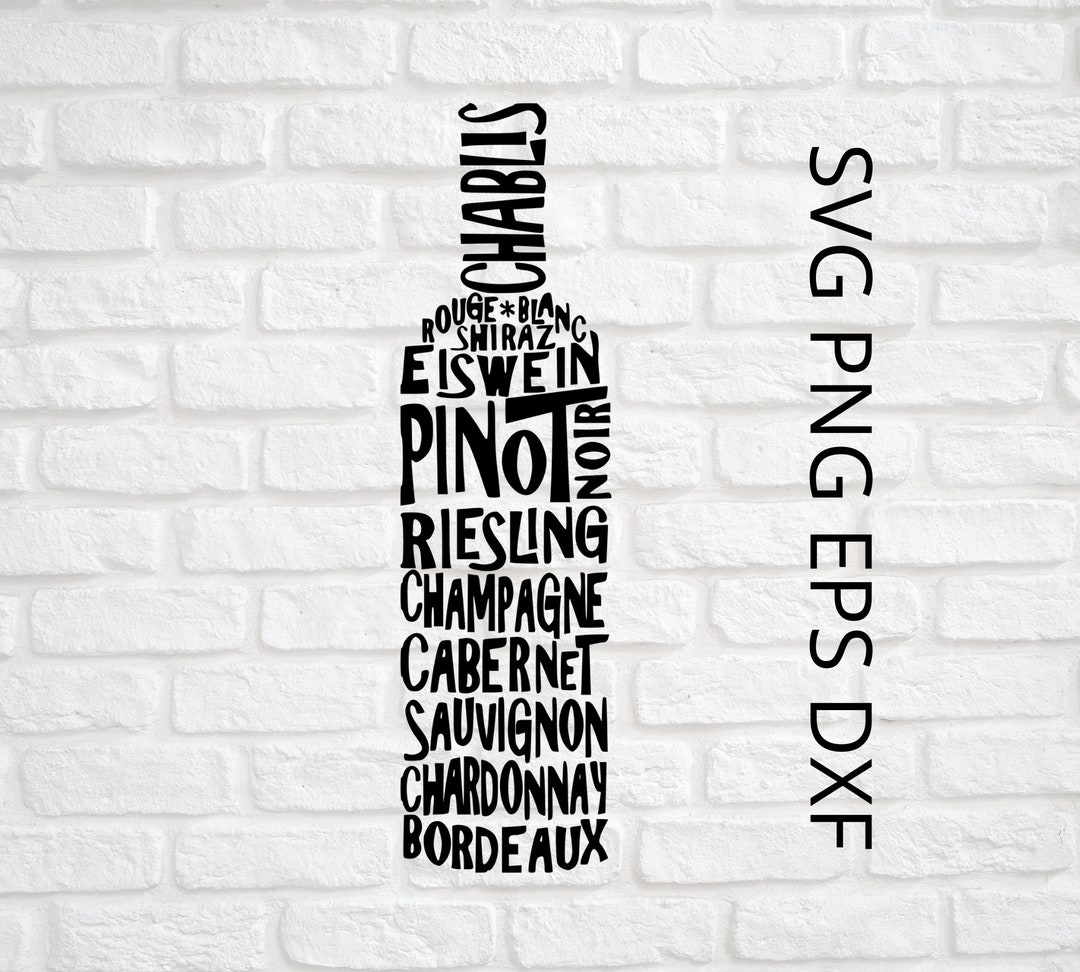 CHABLIS
ROUGE*BLANC
SHIRAZ
EISWEIN
PINOT
NOIR
RIESLING
CHAMPAGNE
CABERNET
SAUVIGNON
CHARDONNAY
BORDEAUX
SVG PNG EPS DXF